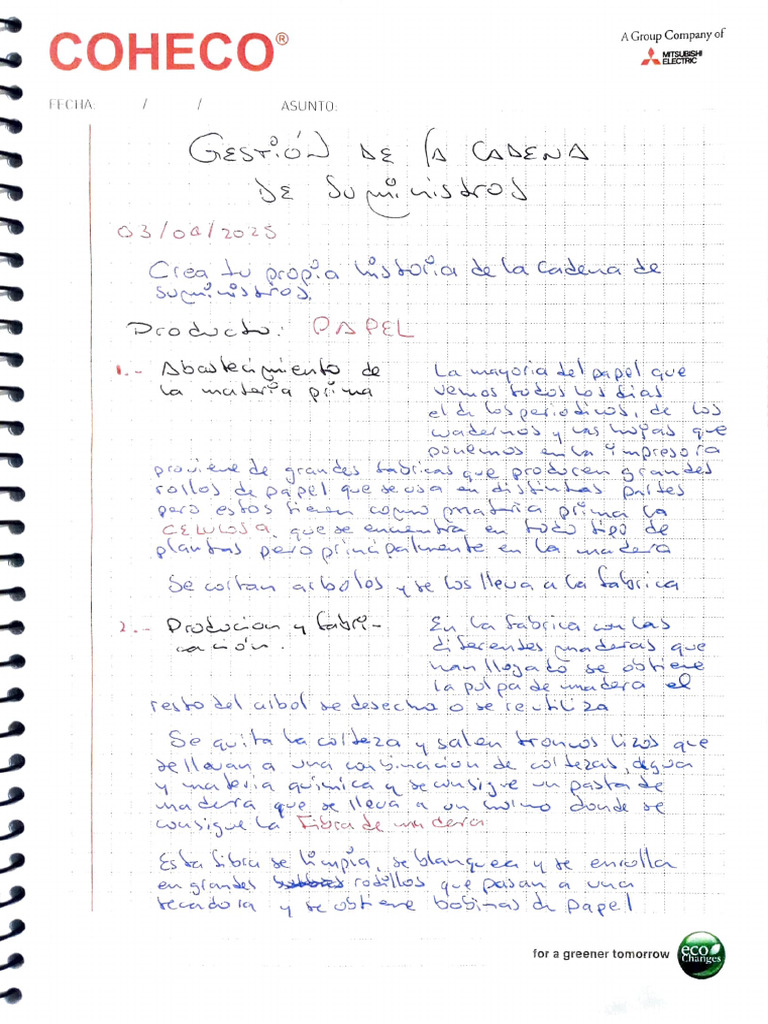 COHECO®
A Group Company of
MITSUBISHI
ELECTRIC
FECHA: / / ASUNTO:
GESTIÓN DE LA CADENA
DE SUMINISTROS
03/04/2025
Crea tu propia historia de la cadena de
suministros.
Producto: PAPEL
1.- Abastecimiento de
la materia prima
La mayoria del papel que
vemos todos los dias
el de los periodicos, de los
cuadernos y las hojas que
ponemos en la impresora
proviene de grandes fabricas que producen grandes
rollos de papel que se usa en distintas partes
pero estos tienen como materia prima la
CELULOSA, que se encuentra en todo tipo de
plantas pero principalmente en la madera
Se cortan arboles y se los lleva a la fabrica
2.- Producion y fabri-
cación.
En la fabrica con las
diferentes maderas que
han llegado se obtiene
la pulpa de madera el
resto del arbol se desecha o se reutiliza
Se quita la corteza y salen troncos lizos que
se llevan a una combinacion de cortezas, agua
y materia quimica y se consigue un pasta de
madera que se lleva a un molino donde se
consigue la Fibra de madera
Esta fibra se limpia, se blanquea y se enrolla
en grandes rodillos que pasan a una
secadora y se obtiene bobinas de papel
for a greener tomorrow
eco
Changes